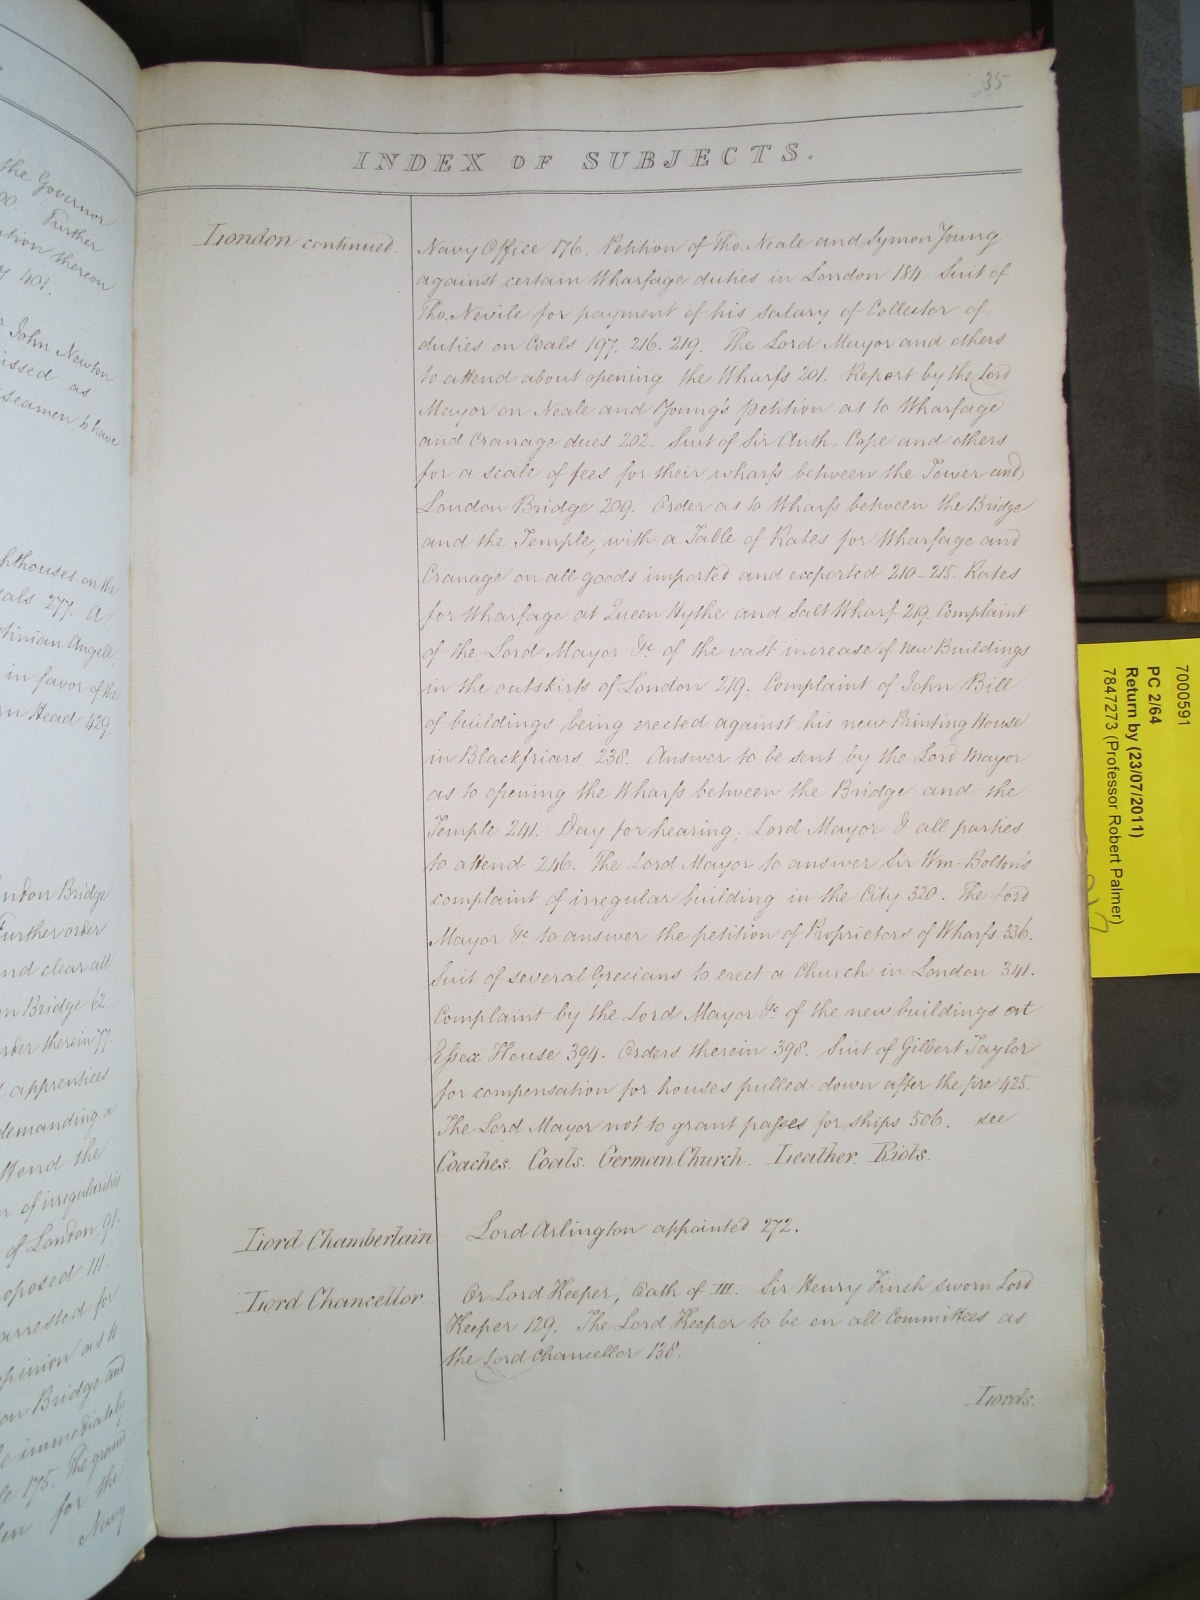 the Governor
Further
thereon
401.
John Newton
as
seamen, to have
on the
277. A
Angell,
in favor of the
Head 429.
London Bridge
Further order
and clear all
Bridge 62.
therein 77.
apprentices
demanding a
attend the
of irregularities
of London 91.
111.
arrested for
opinion as to
Bridge and
immediately
175. The ground
for the
Navy
35
INDEX OF SUBJECTS.
London continued.
Navy Office 176. Petition of Tho. Neale and Symon Young
against certain Wharfage duties in London 184. Suit of
Tho. Nevile for payment of his salary of Collector of
duties on Coals 197. 216. 219. The Lord Mayor and others
to attend about opening the Wharfs 201. Report by the Lord
Mayor on Neale and Young's petition as to Wharfage
and Cranage dues 202. Suit of Sir Anth. Cope and others
for a scale of fees for their wharfs between the Tower and
London Bridge 209. Order as to Wharfs between the Bridge
and the Temple, with a Table of Rates for Wharfage and
Cranage on all goods imported and exported 210-215. Rates
for Wharfage at Queen Hythe and Salt Wharf 219. Complaint
of the Lord Mayor &c of the vast increase of new Buildings
in the outskirts of London 219. Complaint of John Bill
of buildings being erected against his new Printing House
in Blackfriars 238. Answer to be sent by the Lord Mayor
as to opening the Wharfs between the Bridge and the
Temple 241. Day for hearing; Lord Mayor & all parties
to attend 246. The Lord Mayor to answer Sir Wm. Bolton's
complaint of irregular building in the City 320. The Lord
Mayor &c to answer the petition of Proprietors of Wharfs 336.
Suit of several Grecians to erect a Church in London 341.
Complaint by the Lord Mayor &c of the new buildings at
Essex House 394. Orders therein 398. Suit of Gilbert Taylor
for compensation for houses pulled down after the fire 425.
The Lord Mayor not to grant passes for ships 506. see
Coaches. Coals. German Church. Leather. Riots.
Lord Chamberlain
Lord Arlington appointed 272.
Lord Chancellor
Or Lord Keeper, Oath of III. Sir Henry Finch sworn Lord
Keeper 129. The Lord Keeper to be on all Committees as
the Lord Chancellor 138.
Lords.
7000591
PC 2/64
Return by (23/07/2011)
7847273 (Professor Robert Palmer)